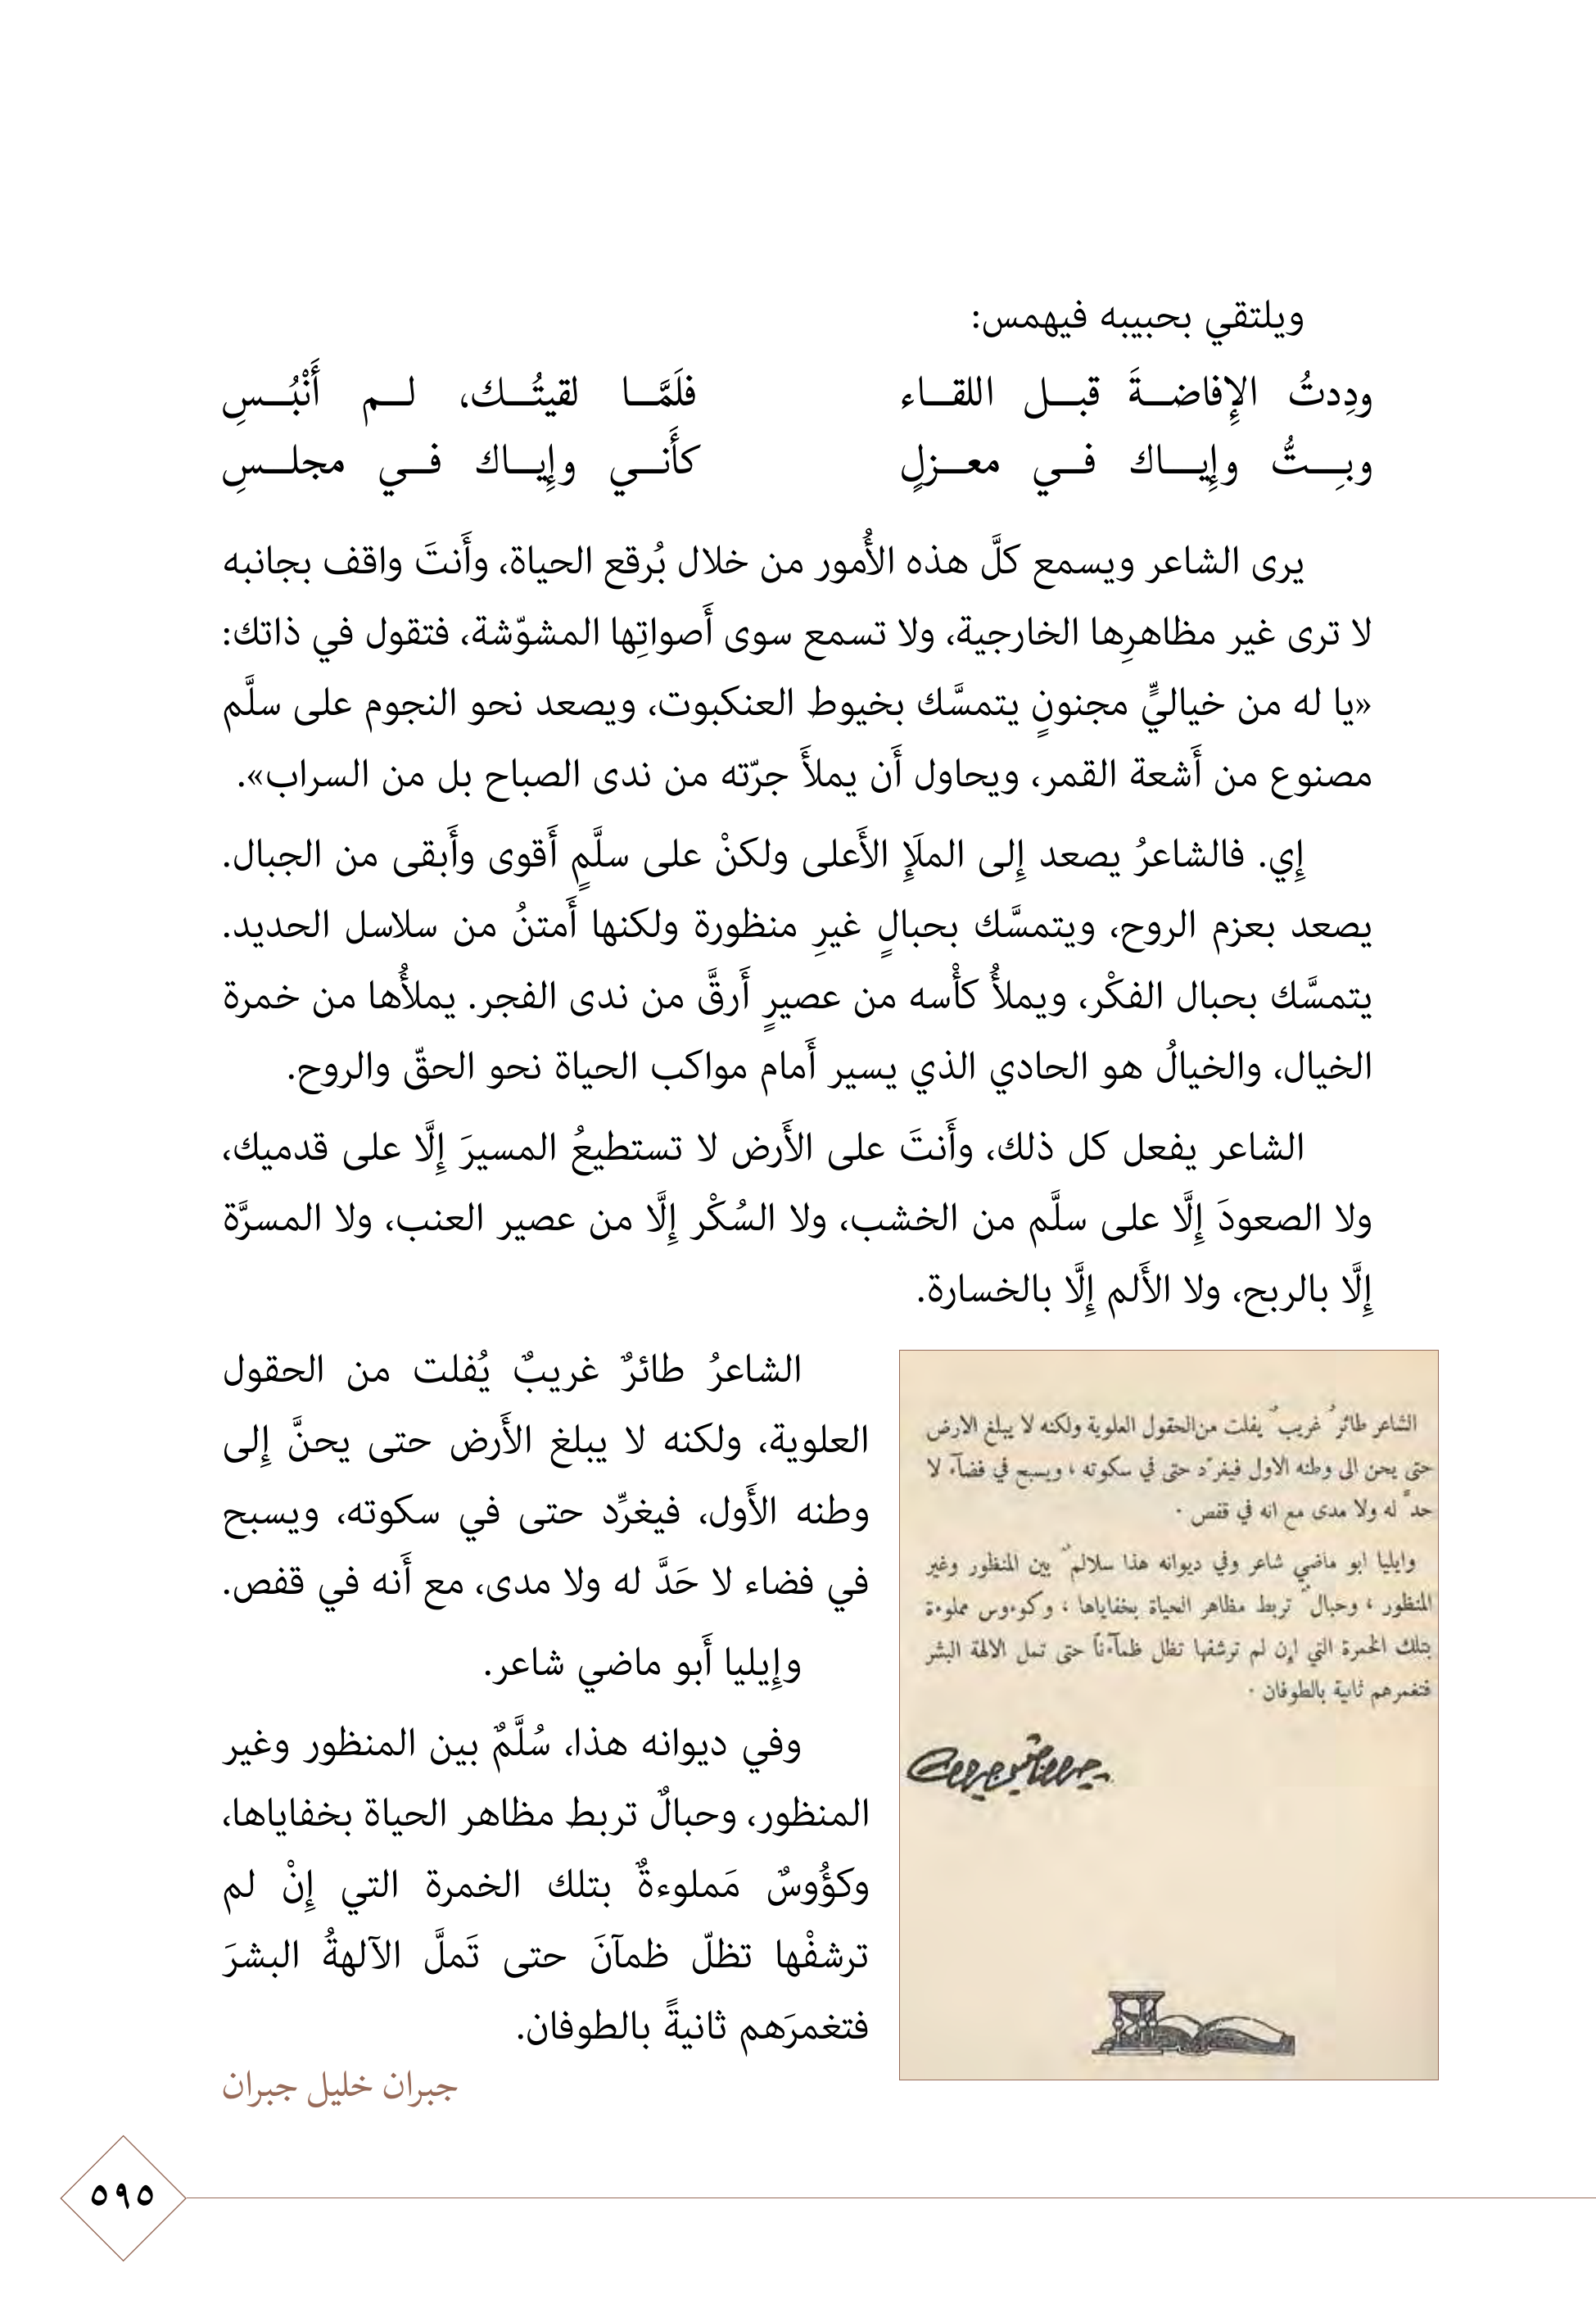 ويلتقي بحبيبه فيهمس:
ودِدتُ الإِفاضــةَ قبــل اللقــاء فلَمَّــا لقيتُــك، لــم أَنْبُــسِ
وبِــتُّ وإِيــاك فــي معــزلٍ كأَنــي وإِيــاك فــي مجلــسِ
يرى الشاعر ويسمع كلَّ هذه الأُمور من خلال بُرقع الحياة، وأَنتَ واقف بجانبه
لا ترى غير مظاهرِها الخارجية، ولا تسمع سوى أَصواتِها المشوّشة، فتقول في ذاتك:
«يا له من خياليٍّ مجنونٍ يتمسَّك بخيوط العنكبوت، ويصعد نحو النجوم على سلَّم
مصنوع من أَشعة القمر، ويحاول أَن يملأَ جرّته من ندى الصباح بل من السراب».
إِي. فالشاعرُ يصعد إِلى الملَإِ الأَعلى ولكنْ على سلَّمٍ أَقوى وأَبقى من الجبال.
يصعد بعزم الروح، ويتمسَّك بحبالٍ غيرِ منظورة ولكنها أَمتنُ من سلاسل الحديد.
يتمسَّك بحبال الفكْر، ويملأُ كأْسه من عصيرٍ أَرقَّ من ندى الفجر. يملأُها من خمرة
الخيال، والخيالُ هو الحادي الذي يسير أَمام مواكب الحياة نحو الحقّ والروح.
الشاعر يفعل كل ذلك، وأَنتَ على الأَرض لا تستطيعُ المسيرَ إِلَّا على قدميك،
ولا الصعودَ إِلَّا على سلَّم من الخشب، ولا السُكْر إِلَّا من عصير العنب، ولا المسرَّة
إِلَّا بالربح، ولا الأَلم إِلَّا بالخسارة.
الشاعرُ طائرٌ غريبٌ يُفلت من الحقول
العلوية، ولكنه لا يبلغ الأَرض حتى يحنَّ إِلى
وطنه الأَول، فيغرِّد حتى في سكوته، ويسبح
في فضاء لا حَدَّ له ولا مدى، مع أَنه في قفص.
وإِيليا أَبو ماضي شاعر.
وفي ديوانه هذا، سُلَّمٌ بين المنظور وغير
المنظور، وحبالٌ تربط مظاهر الحياة بخفاياها،
وكؤُوسٌ مَملوءةٌ بتلك الخمرة التي إِنْ لم
ترشفْها تظلّ ظمآنَ حتى تَملَّ الآلهةُ البشرَ
فتغمرَهم ثانيةً بالطوفان.
جبران خليل جبران
الشاعر طائرٌ غريبٌ يفلت من الحقول العلوية ولكنه لا يبلغ الارض
حتى يحن الى وطنه الاول فيغرّد حتى في سكوته ، ويسبح في فضآء لا
حدَّ له ولا مدى مع انه في قفص .
وايليا ابو ماضي شاعر وفي ديوانه هذا سلالمٌ بين المنظور وغير
المنظور ، وحبالٌ تربط مظاهر الحياة بخفاياها ، وكوءوس مملوءة
بتلك الخمرة التي إن لم ترشفها تظل ظمآءناً حتى تمل الالهة البشر
فتغمرهم ثانية بالطوفان .
جبران خليل جبران
٥٩٥